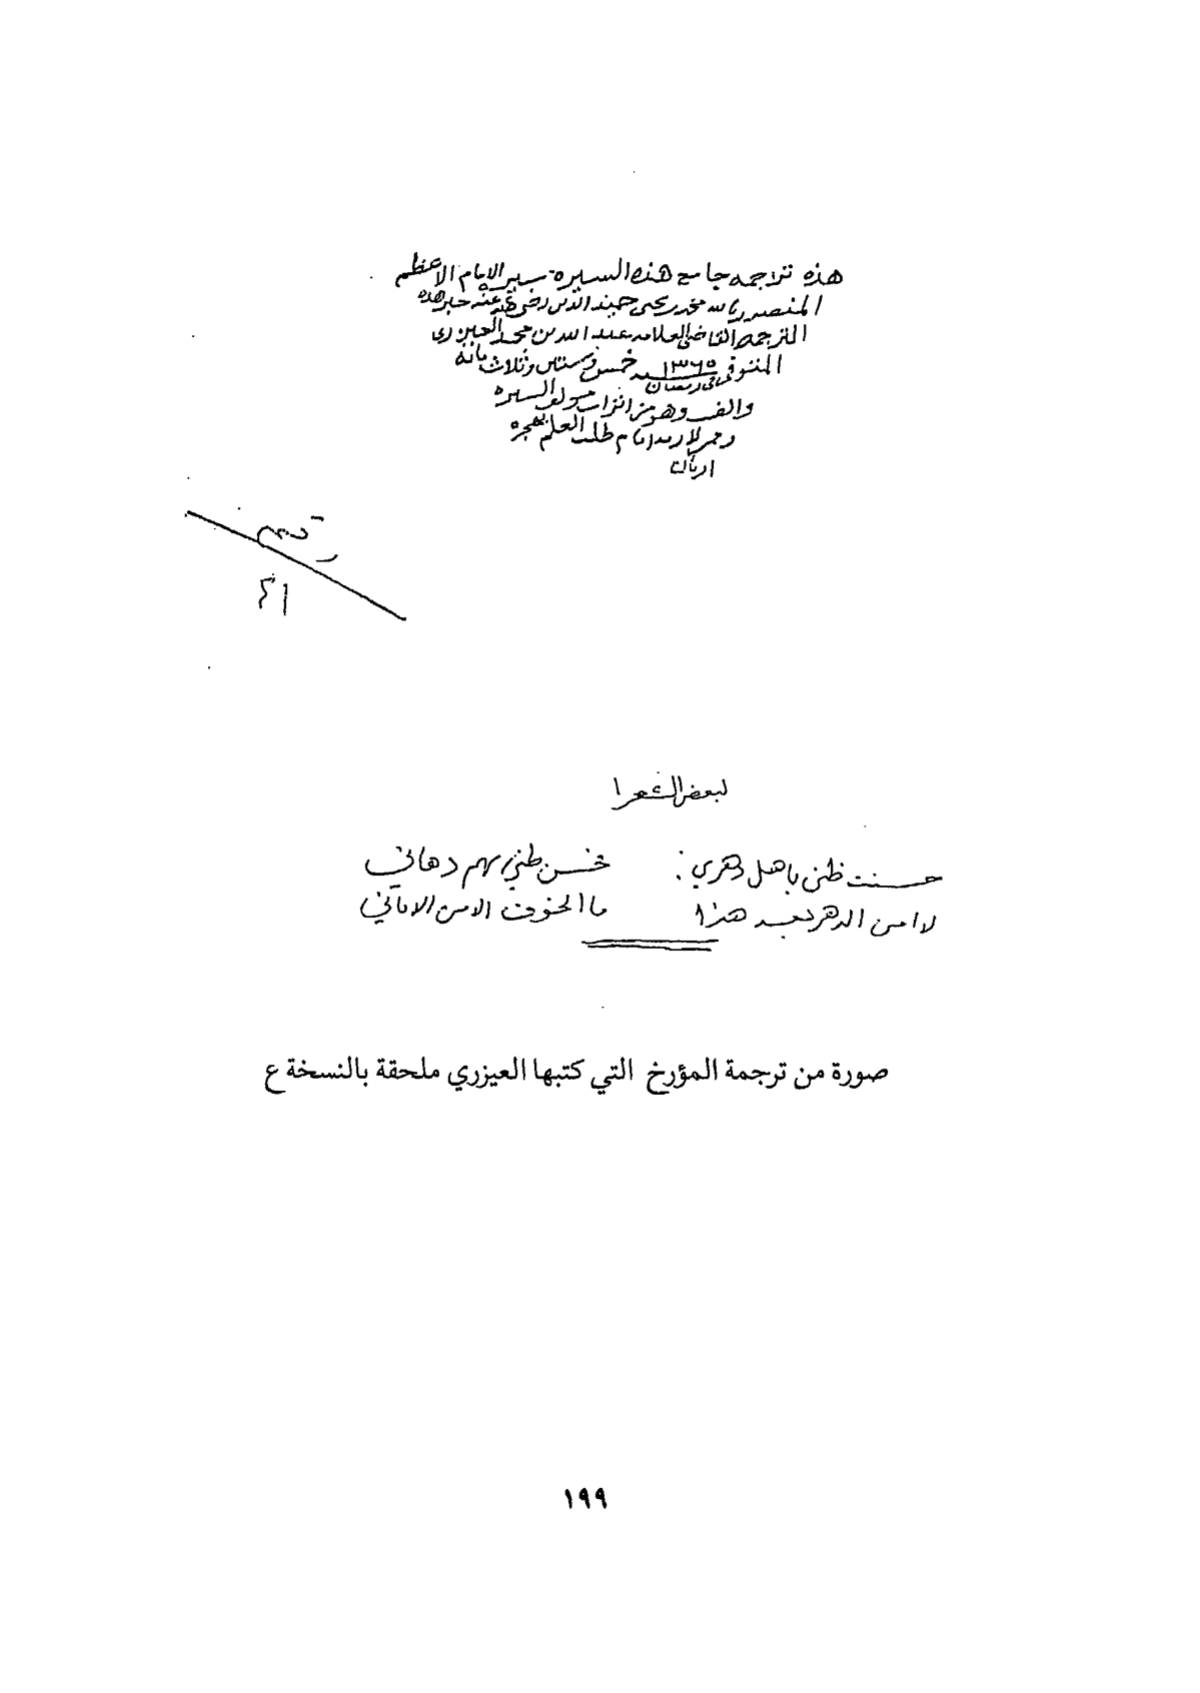 هذه ترجمه جامع هذه السيره سير الإمام الاعظم
المنصور بالله محمد يحيى حميد الدين رضي الله عنه حبر هذه
الترجمه القاضي العلامه عبد الله بن محمد العيزري
المتوفى في رمضان ١٣٦٥ سنه خمس وستين وثلاث مائه
والف وهو من اتراب مولف السيره
وممن لازمه ايام طلب العلم بهجره
اريان
رقم
٤١
لبعض الشعرا
حسنت ظني باهل دهري : فحسن ظني بهم دهاني
لا امن الدهر بعد هذا ما الخوف الا من الاماني
صورة من ترجمة المؤرخ التي كتبها العيزري ملحقة بالنسخة ع
١٩٩